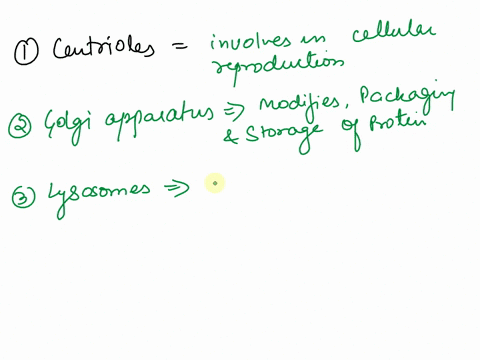 ① Centrioles = involves in cellular
reproduction
② Golgi apparatus ⇒ Modifies, Packaging
& Storage of Protein
③ Lysosomes ⇒